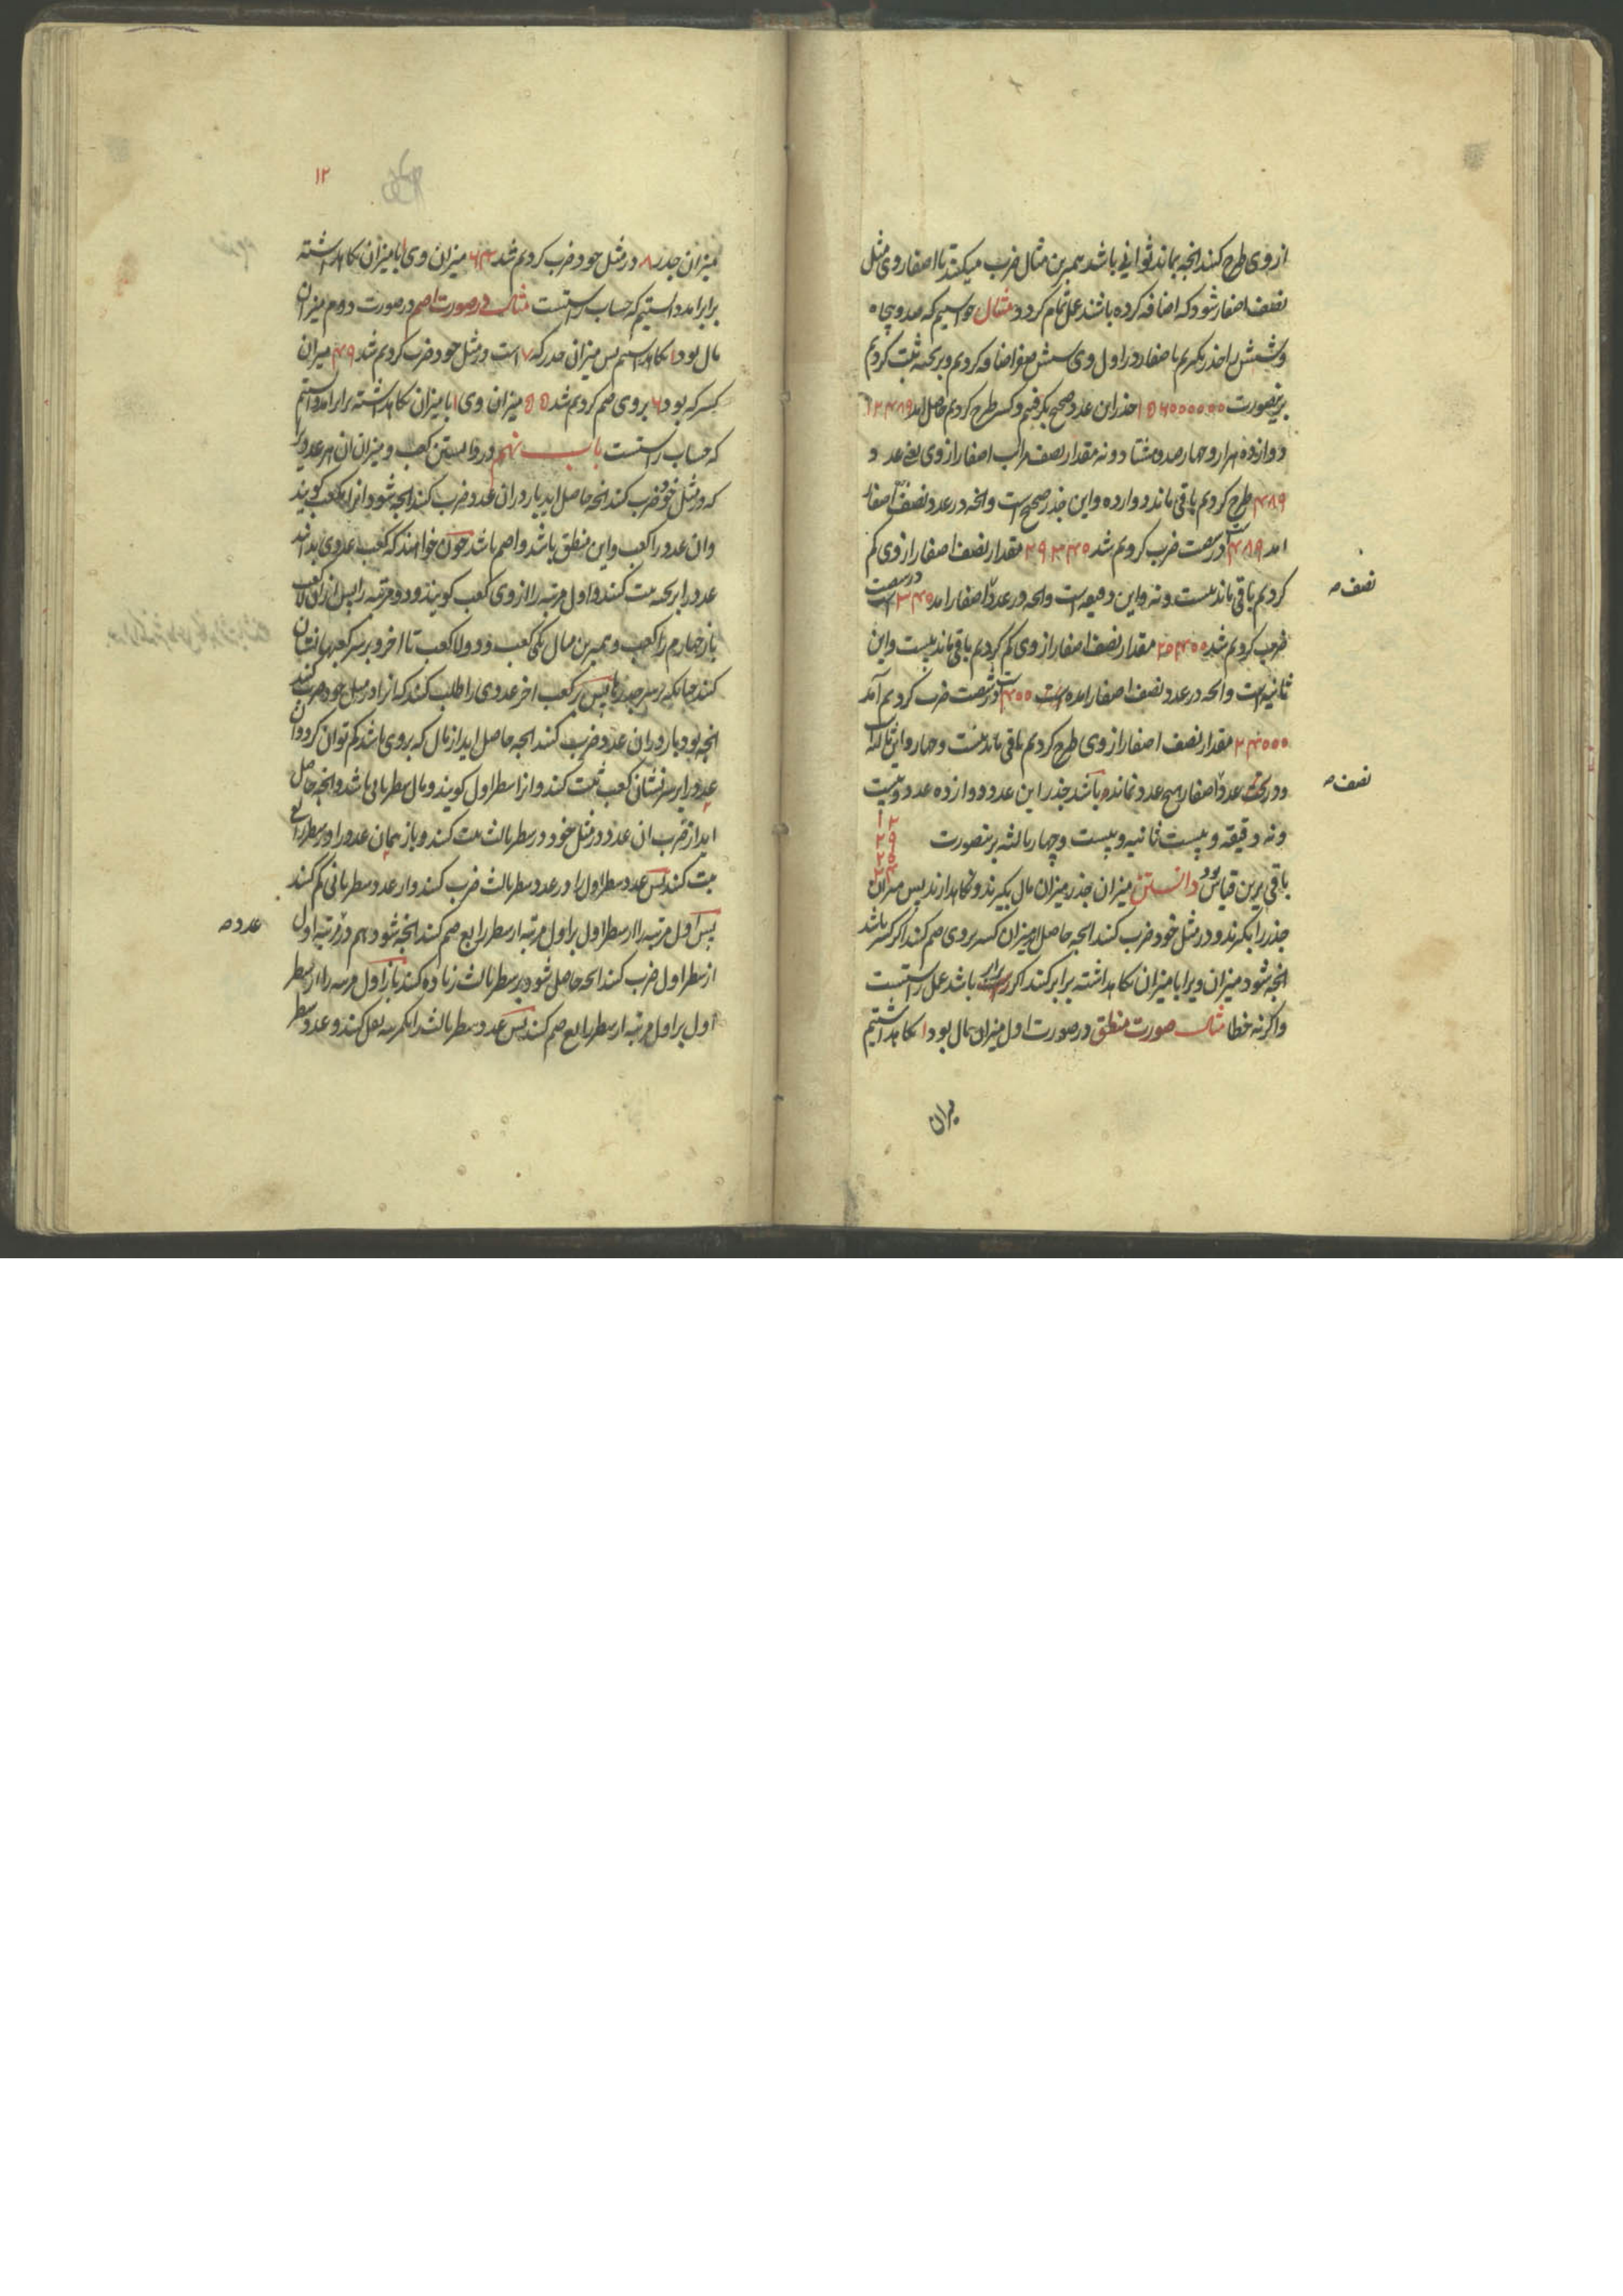 از وی طرح کنند انچه بماند ثوانی باشد همبرین مثال ضرب میکنند تا اصفار وی مثل
نصف اصفار شود که اضافه کرده باشند عمل تمام کردد مثال خواستیم که صد و پنجاه
و شش را جذر بکیریم باصفار در اول وی شش صفر اضافه کردیم و بر تخته ثبت کردیم
برینصورت ۱۵۶۰۰۰۰۰۰ جذر این عدد صحیح بکرفتیم و کسر طرح کردیم حاصل امد ۱۲۴۸۹
دوازده هزار و چهارصد و هشتاد و نه مقدار نصف مراتب اصفار از وی یعنی عدد
۴۸۹ طرح کردیم باقی ماند دوازده و این جذر صحیح است و انچه در عدد نصف اصفار
امد ۴۸۹ است در شصت ضرب کردیم شد ۲۹۳۴۰ مقدار نصف اصفار از وی کم
نصف صح
کردیم باقی ماند بیست و نه و این دقیقه است و انچه در عدد اصفار امد ۳۴۰ است در شصت
ضرب کردیم شد ۲۰۴۰۰ مقدار نصف اصفار از وی کم کردیم باقی ماند بیست و این
ثانیه است و انچه در عدد نصف اصفار امده است ۴۰۰ است در شصت ضرب کردیم آمد
۲۴۰۰۰ مقدار نصف اصفار از وی طرح کردیم باقی ماند بیست و چهار و این ثالثه است
نصف صح
و در تحت عدد اصفار هیچ عدد نمانده باشد جذر این عدد دوازده عدد و بیست
و نه دقیقه و بیست ثانیه و بیست و چهار ثالثه برینصورت
۱۲
۲۹
۲۰
۲۴
باقی برین قیاس بود دانستن میزان جذر میزان مال بکیرند و نکاهدارند پس میزان
جذر را بکیرند و در مثل خود ضرب کنند انچه حاصل اید میزان کسر بروی ضم کنند اکر کسر باشد
انچه شود میزان ویرا با میزان نکاهداشته برابر کنند اکر برابر باشد عمل راستست
و اکر نه خطا مثال صورت منطق در صورت اول میزان مال بود ۱ نکاهداشتیم
میزان
۱۲
میزان جذر ۸ در مثل خود ضرب کردیم شد ۶۴ میزان وی ۱ با میزان نکاهداشته
برابر امد دانستیم که حساب راستست مثال در صورت اصم در صورت دوم میزان
مال بود ۱ نکاهداشتیم پس میزان جذر که ۷ است در مثل خود ضرب کردیم شد ۴۹ میزان
کسر که بود ۶ بروی ضم کردیم شد ۵۵ میزان وی ۱ با میزان نکاهداشته برابر امد دانستیم
که حساب راستست باب نهم در دانستن کعب و میزان ان هر عددیرا
که در مثل خود ضرب کنند انچه حاصل اید باز در ان عدد ضرب کنند انچه شود انرا مکعب کویند
و ان عدد را کعب و این منطق باشد و اصم باشد چون خواهند که کعب عددی بدانند
عدد را بر تخته ثبت کنند و اول مرتبه را از وی کعب کویند و دو مرتبه را پس ازان لا کعب
باز چهارم را کعب و همبرین مثال یکی کعب و دو لا کعب تا اخر و بر سر کعبها نشان
کنند چنانکه بر سر جذرها پس زیر کعب اخر عددی را طلب کنند که انرا در مثل خود ضرب کنند
انچه بود باز در ان عدد ضرب کنند انچه حاصل اید از مال که بروی باشد کم توان کرد و ان
عدد را بر سر نشان کعب ثبت کنند و انرا سطر اول کویند و مال سطر ثانی باشد و انچه حاصل
اید از ضرب ان عدد در مثل خود در سطر ثالث ثبت کنند و باز همان عدد را در سطر رابع
ثبت کنند پس عدد سطر اول را در عدد سطر ثالث ضرب کنند و از عدد سطر ثانی کم کنند
پس اول مرتبه را از سطر اول بر اول مرتبه از سطر رابع ضم کنند انچه شود هم در مرتبه اول
عدد صح
از سطر اول ضرب کنند انچه حاصل شود بر سطر ثالث زیاده کنند باز اول مرتبه را از سطر
اول بر اول مرتبه از سطر رابع ضم کنند پس عدد سطر ثالث را یکمرتبه نقل کنند و عدد سطر